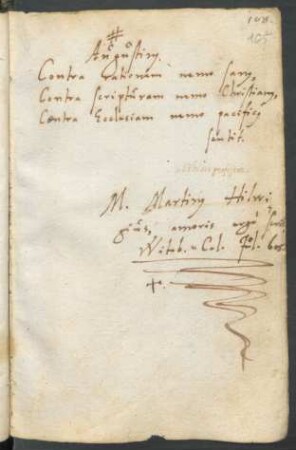 108.
Augustiny.
Contra Rationem nemo sany,
Contra Scripturam nemo Christiany,
Contra Ecclesiam nemo pacificy
sentit.
M. Martiny Helwi,
giús, amoris ergò
Witeb. Col.